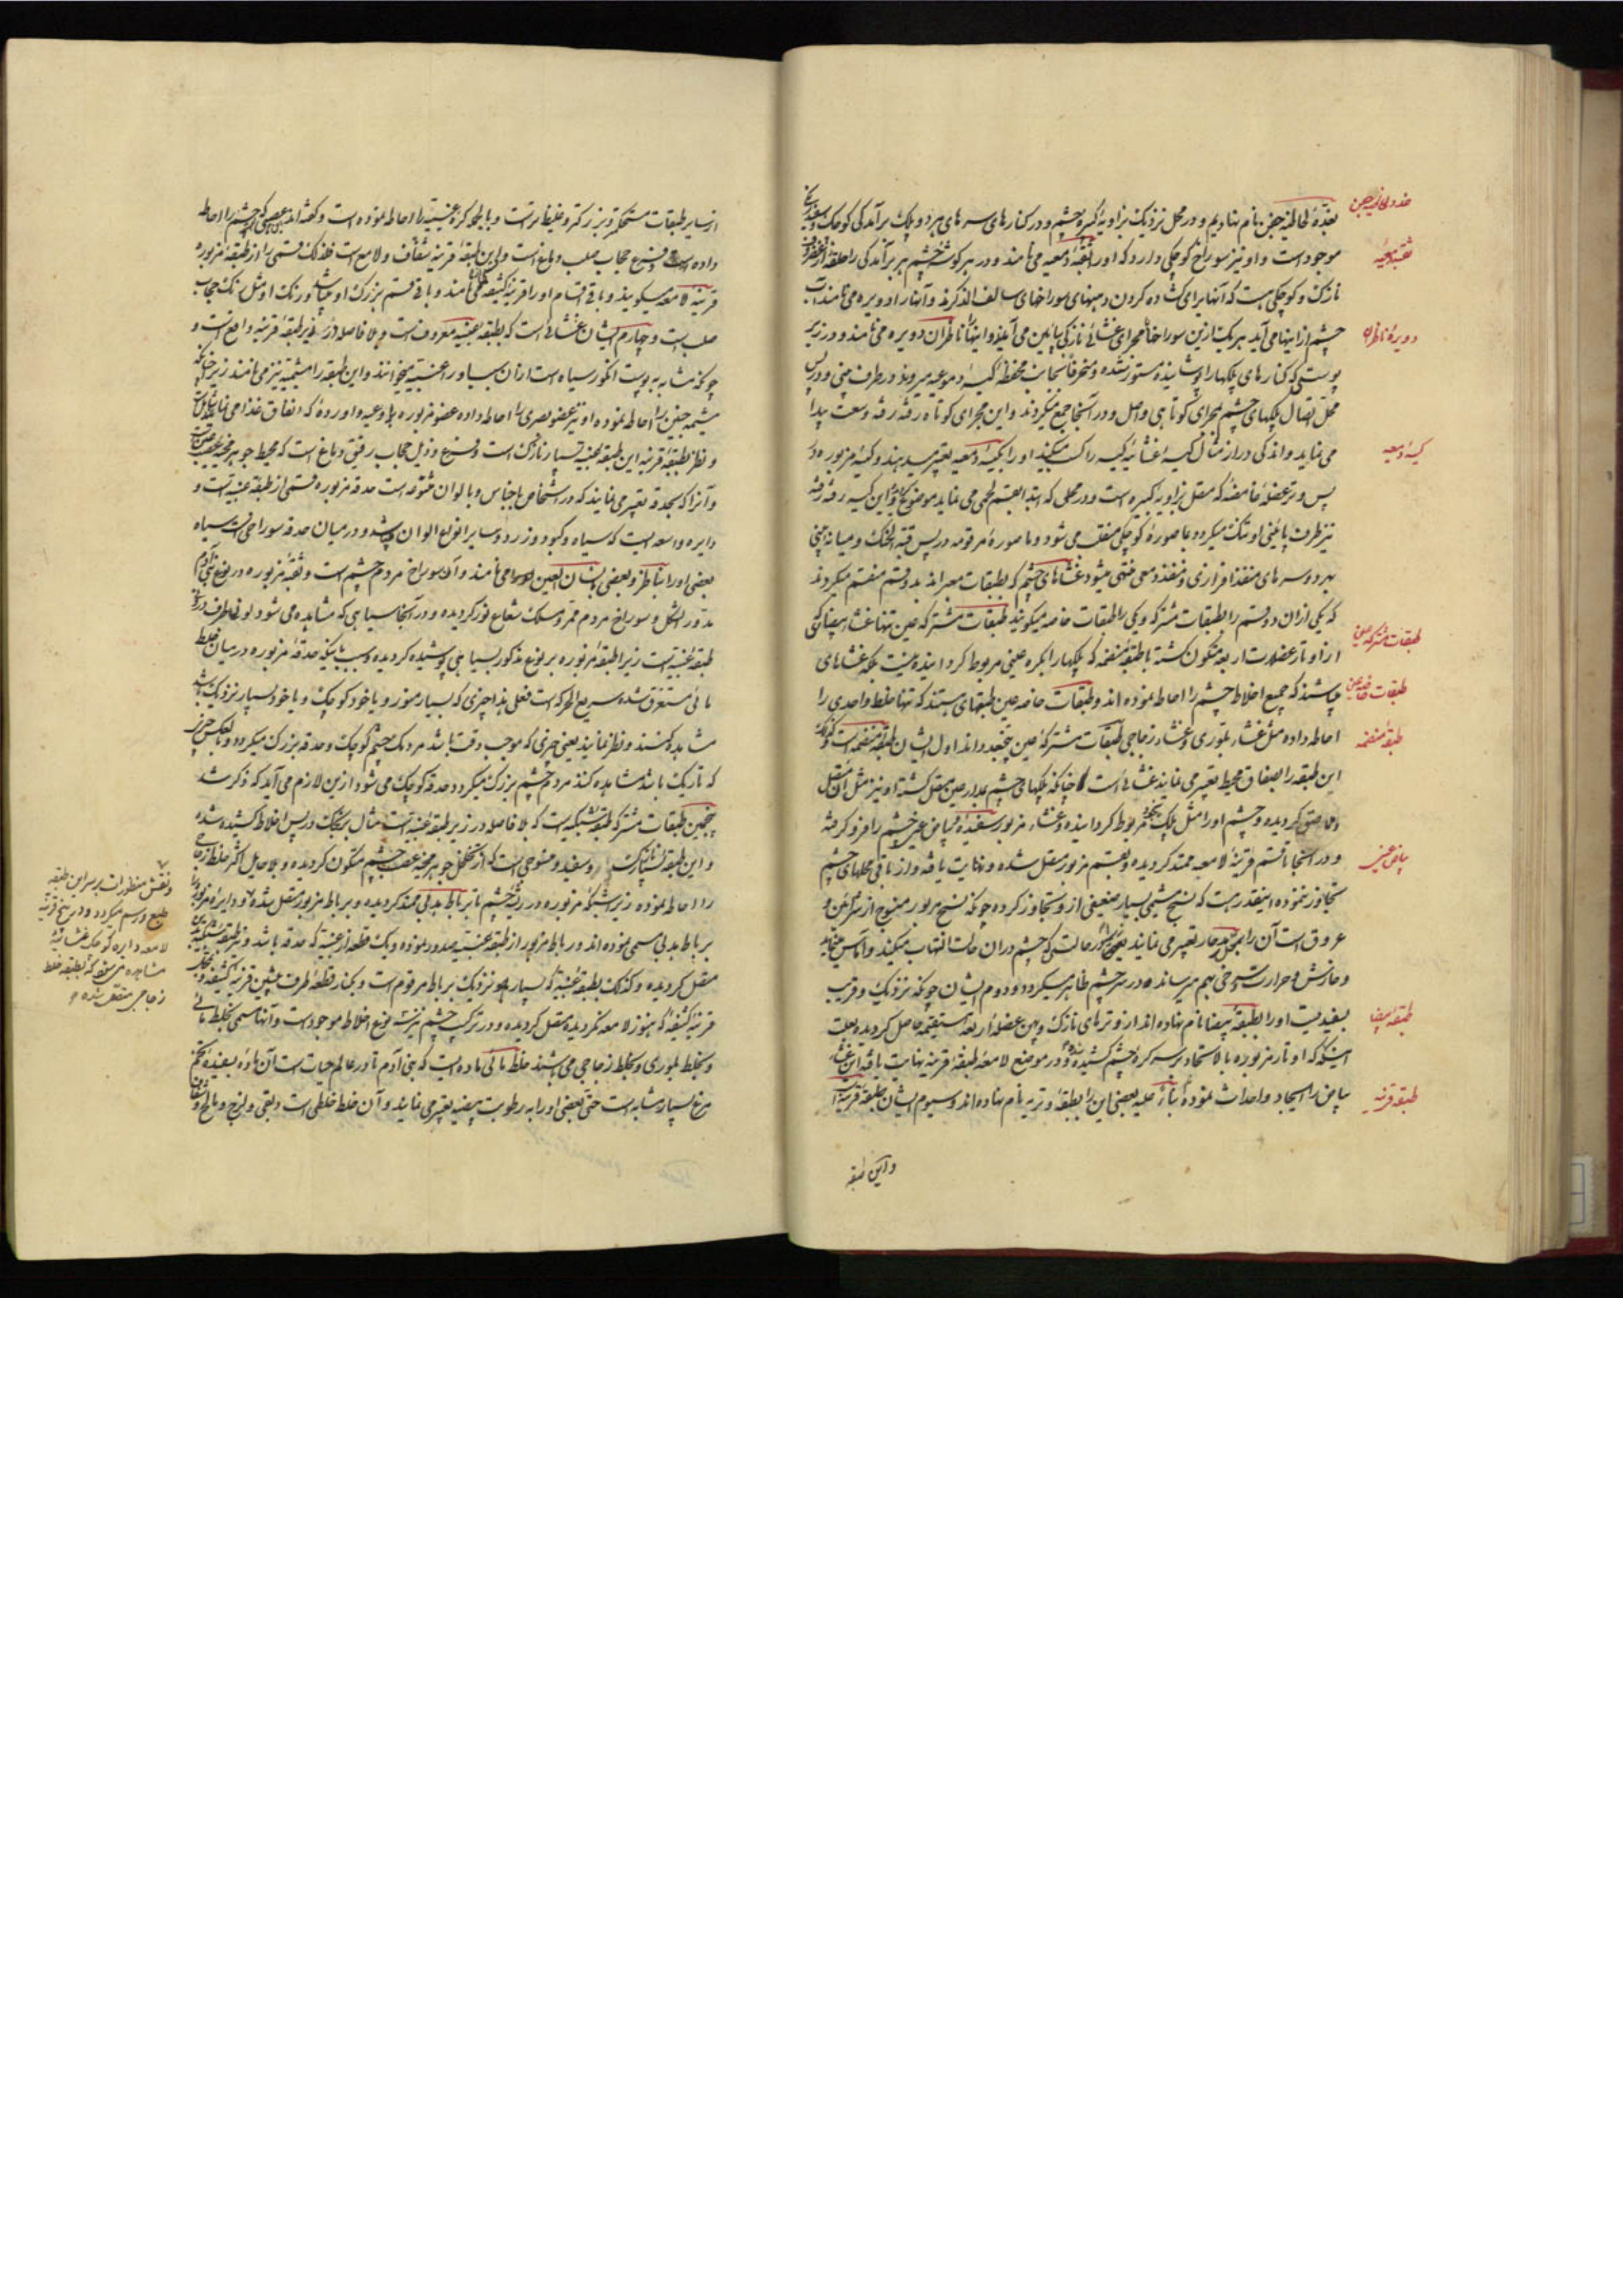 بغدّهٔ لحاطیهٔ جفن نام نهادیم و در محل نزدیک بزاویهٔ کبیرهٔ چشم و در کنارهای سرهای هر دو پلک برآمدگی کوچک و سفید
موجود است و او نیز سوراخ کوچکی دارد که او را ثقبهٔ دمعیه می نامند و در هر گوشهٔ چشم هر برآمدگی را حلقهٔ
نازک و کوچکی هست که آنها برای گشاده کردن دهنهای سوراخهای سالف الذکرند و آنها را دویره می نامند آب
چشم از اینها می آید هر یک ازین سوراخها مجرای غشائی نازکی پائین می آید و اینها ناظران دویره می نامند و در زیر
پوستی که کنارهای پلکها را پوشانیده مستور شده و منحرفاً بجانب محفظهٔ کیسهٔ دموعیه میروند و در طرف بینی و در پس
محل اتصال پلکهای چشم بمجرای کوتاهی واصل و در آنجا جمع میگردند و این مجرای کوتاه رفته رفته وسعت پیدا
می نماید و اندکی دراز مثال کیسهٔ غشائیه کیسه را کسب میکند او را بکیسهٔ دمعیه تعبیر میدهند و کیسهٔ مزبوره در
پس وتر عضلهٔ غامضه که متصل بزاویهٔ کبیره است و در محلی که ابتدا بقسم لحمی می نماید موضوع و این کیسه رفته رفته
نیز طرف پائینی او تنگ میگردد بماصورهٔ کوچکی منقلب می شود و ماصورهٔ مرقومه در پس قبة الحنک و میانهٔ بینی
بهر دو سرهای منفذ افرازی و منفذ دمعی منتهی میشود غشاهای چشم که بطبقات معبراند بدو قسم منقسم میگردند
که یکی ازان دو قسم را طبقات مشترکه و یکی را طبقات خاصه میگویند طبقات مشترکهٔ عین تنها غشاء بیضا که
از اوتار عضلات اربعه متکون گشته با طبقهٔ منضمه که پلکها را بکرهٔ عینی مربوط گردانیده نیست بلکه غشاهای
می باشند که جمیع اخلاط چشم را احاطه نموده اند و طبقات خاصهٔ عین طبقهای هستند که تنها خلط واحدی را
احاطه داده مثل غشاء بلوری و غشاء زجاجی طبقات مشترکهٔ عین پنج عدد اند اول ایشان طبقهٔ منضمه است
این طبقه را بصفاق محیط تعبیر می نمایند غشائی است چنانکه پلکهای چشم بمدار عین متصل گشته او نیز مثل آن متصل
و ملاصق گردیده و چشم او را مثل پلک مربوط گردانیده و غشاء مزبور سفیده و بیاض عین چشم را فرو گرفته
و در آنجا تا قسم قرنیهٔ لامعه ممتد گردیده و بقسم مزبور متصل شده و نهایت یافته و از باقی محلهای چشم
تجاوز ننموده اینقدر هست که نسج شحمی بسیار ضعیفی ازو تجاوز کرده چونکه نسج مزبور ممزوج از شرائین و
عروق است آن را بمحل حار تعبیر می نمایند یعنی در حالتی که چشم دران حالت التهاب میکند و آماس مینماید
و خارش و حرارت و سرخی بهم میرساند در چشم ظاهر میگردد و دوم ایشان چونکه نزدیک و قریب
بسفیدیست او را طبقهٔ بیضا نام نهاده اند از وترهای نازک و پهن عضلهٔ اربعه مستقیمه حاصل گردیده بعلت
اینکه اوتار مزبوره بالاتحاد بر سر کرهٔ چشم کشیده شده و در موضع لامعهٔ طبقهٔ قرنیه نهایت یافته این غشاء
بیاض را ایجاد و احداث نموده بناءً علیه بعضی این را بطبقهٔ وتریه نام نهاده اند و سیوم ایشان طبقهٔ قرنیه است
و این طبقه
غدد لحاطیهٔ جفن
ثقبهٔ دمعیه
دویرهٔ ناظران
کیسهٔ دمعیه
طبقات مشترکهٔ عین
طبقات خاصهٔ عین
طبقهٔ منضمه
بیاض عین
طبقهٔ بیضا
طبقهٔ قرنیه
از سایر طبقات مستحکمتر و بزرگتر و غلیظ تر است و بالجمله کرهٔ عینیه را احاطه نموده است و گفته اند عصبی که چشم را احاطه
داده است و فرع حجاب صلب دماغ است و این طبقهٔ قرنیه شفاف و لامع است فلذلک قسمی را از طبقهٔ مزبوره
قرنیهٔ لامعه میگویند و باقی اقسام او را قرنیهٔ کثیفه می نامند و باقی قسم بزرگ او میباشد و رنگ او مثل رنگ حجاب
صلب است و چهارم ایشان غشائی است که بطبقهٔ عنبیه معروف است و بلا فاصله در زیر طبقهٔ قرنیه واقع است و
چونکه مشابه به پوست انگور سیاه است ازان سبب او را عنبیه میخوانند و این طبقه را مشیمیه نیز می نامند زیرا چنانکه
مشیمه جنین را احاطه نموده او نیز عضو بصری را احاطه داده عضو مزبوره باوعیه و اورده که انفاق غذا می نماید
و نظر بطبقهٔ قرنیه این طبقهٔ عنبیه بسیار نازک است و فرع و ذیل حجاب رقیق دماغ است که محیط جوهر مخیهٔ عصب
و آنرا که بحدقه تعبیر می نمایند که در اشخاص باجناس و بالوان متنوعه است حدقهٔ مزبوره قسمی از طبقهٔ عنبیه است و
دایرهٔ واسعه ایست که سیاه و کبود و زرد و سایر انواع الوان می باشد و در میان حدقه سوراخی است سیاه
بعضی او را بناظر و بعضی بانسان العین موسوم می نامند و آن سوراخ مردم چشم است و ثقبهٔ مزبوره در نوع بنی آدم
مدور الشکل و سوراخ مردم ممر و مسلک شعاع نور گردیده و در آنجا سیاهی که مشاهده می شود لون طرف درونی
طبقهٔ عنبیه است زیرا طبقهٔ مزبوره بر نوع مذکور بسیاهی پوشیده گردیده و بسبب اینکه حدقهٔ مزبوره در میان خلط
مائی مستغرق شده سریع الحرکه است فعلی هذا چیزی که بسیار منور و یا خود کوچک و یا خود بسیار نزدیک باشد
مشاهده کنند و نظر نمایند یعنی چیزی که موجب دقت باشد مردمک چشم کوچک و حدقه بزرگ میگردد و بالعکس چیزی
که تاریک باشد مشاهده کنند مردم چشم بزرگ میگردد و حدقه کوچک می شود ازین لازم می آید که ذکر شد
پنجمین طبقات مشترکه طبقهٔ شبکیه است که بلا فاصله در زیر طبقهٔ عنبیه است مثال برنجک در پس اخلاط کشیده شده
و این طبقه نازک و سفید و منسوجی است که از تخلخل جوهر مخیهٔ عصب چشم متکون گردیده و بلا حایل اکثر خلط زجاجی
را احاطه نموده و نیز شبکهٔ مزبوره در ریشهٔ چشم تا برباط هدبی ممتد گردیده و برباط مزبور متصل شده و دایرهٔ مزبوره را
برباط هدبی مسمی نموده اند و رباط مزبور از طبقهٔ عنبیه صدور نموده و یک قطعه از عنبیه که حدقه باشد و نیز طبقهٔ شبکیه
متصل گردیده و کذلک بطبقهٔ عنبیه که بسیار نزدیک برباط مرقوم است و بکنار قطعهٔ طرف پیشین قرنیهٔ کثیفه و محل
قرنیهٔ کثیفه که هنوز لامعه نگردیده متصل گردیده و در ترکیب چشم نیز سه نوع اخلاط موجود است و آنها مسمی بخلط مائی
و بخلط بلوری و بخلط زجاجی می باشند خلط مائی ماده ایست که بنی آدم تا در عالم حیات است آن ماده بسفیدهٔ تخم
مرغ بسیار مشابه است حتی بعضی او را به رطوبت بیضیه تعبیر می نمایند و آن خلط خلطی است دبقی و لزج و مالح و شفاف
و نقش منظورات بر سر این طبقه
طبع و رسم میگردد و در بیخ قرنیهٔ
لامعه دایرهٔ کوچک غشائیهٔ
مشاهده می شود که بطبقهٔ خلط
زجاجی متصل شده